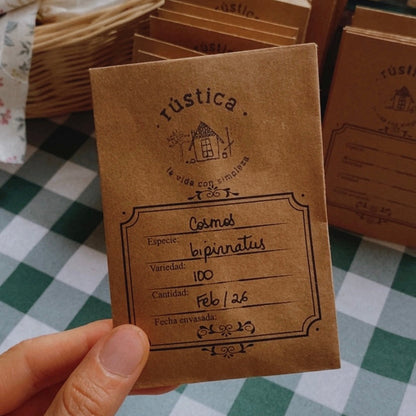 rústica
la vida con simpleza
Cosmos
Especie:
bipinnatus
Variedad:
100
Cantidad:
Feb / 26
Fecha envasada:
rústica
rústica
rústica